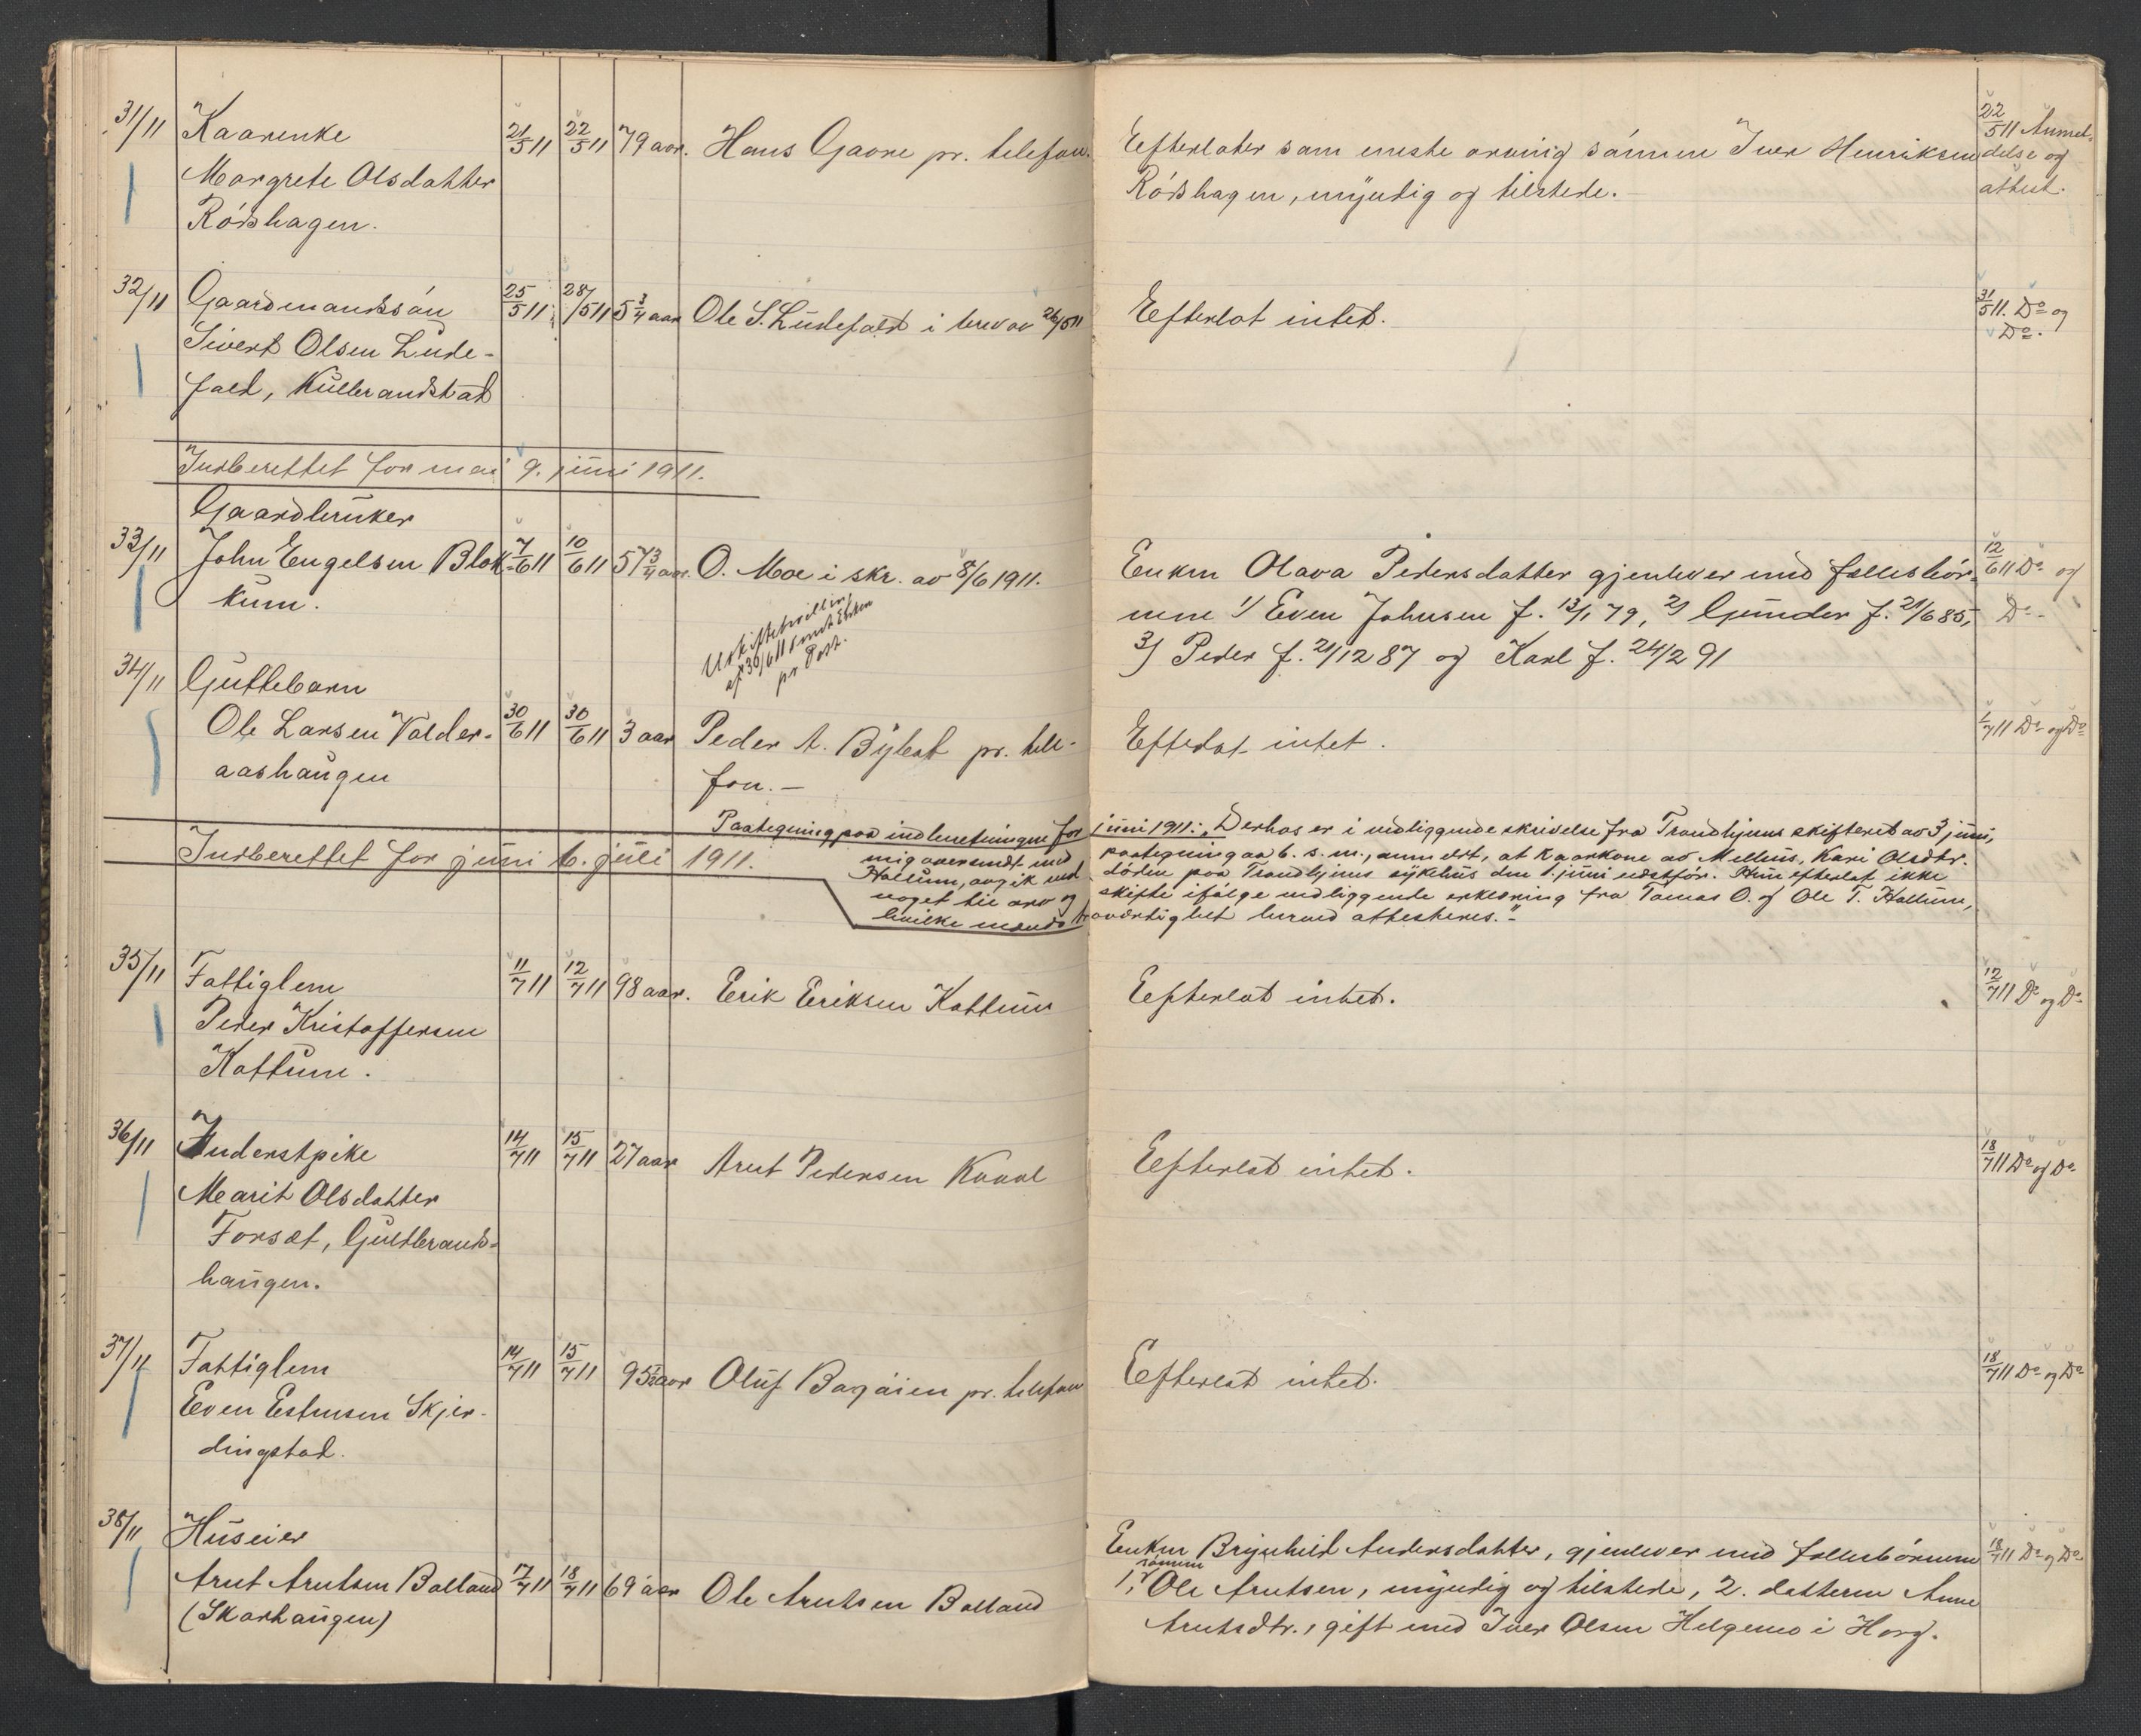 31/11 Kaarenke 21/5 11 22/5 11 79 aar. Hans Gaare pr. telefon. Efterlater som eneste arving sónnen Iver Henriksen 22/5 11 Anmel-
Margrete Olsdatter Róshagen, myndig og tilstede. – delse og
Róshagen. attest.
32/11 Gaardmandssón 25/5 11 28/5 11 5 3/4 aar Ole S. Ludefald i brev av 26/5 11 Efterlot intet. 31/5 11. Do og
Sivert Olsen Lude- Do.
fald, Kulbrandstad
Indberettet for mai 9. juni 1911.
Gaardbruker
33/11 John Engelsen Blok- 7/6 11 10/6 11 57 3/4 aar. O. Moe i skr. av 8/6 1911. Enken Olava Pedersdatter gjenlever med fællesbór- 12/6 11 Do og
kum. nene 1/ Even Johnsen f. 13/1 79, 2) Gunder f. 21/6 85, Do
Uskiftebevilling
af 30/6 11 sendt Enken
pr. Post.
3) Peder f. 21/12 87 og Karl f. 24/2 91
34/11 Guttebarn
Ole Larsen Valder- 30/6 11 30/6 11 3 aar Peder A. Bylat pr. tele- Efterlot intet. 1/7 11 Do og Do
aashaugen fon. –
Paategning paa indberetningen for juni 1911: „Derhos er i vedliggende skrivelse fra Trondhjems skifteret av 3 juni,
Indberettet for juni 6. juli 1911.
mig oversendt med paategning av 6. s. m., anmeldt, at kaarkone av Mellus, Kari Olsdtr.
Hallum, avgik ved döden paa Trondhjems sykehus den 1. juni nästför. Hun efterlot ikke
noget til arv og skifte ifölge vedliggende erklæring fra Tomas O. og Ole T. Hallum,
hvilke mænds troværdighet herved attesteres."
35/11 Fattiglem 11/7 11 12/7 11 98 aar. Erik Eriksen Kattum Efterlot intet. 12/7 11 Do og Do
Peder Kristoffersen
Kattum.
36/11 Inderstpike 14/7 11 15/7 11 27 aar Arnt Pedersen Kvaal Efterlot intet. 18/7 11 Do og Do
Marit Olsdatter
Forset, Gulbrands-
haugen.
37/11 Fattiglem 14/7 11 15/7 11 95 1/2 aar Oluf Bagöien pr. telefon Efterlot intet. 18/7 11 Do og Do
Even Estensen Skjer-
dingstad.
38/11 Huseier Enken Brynhild Andersdatter, gjenlever med fællesbörnene 18/7 11 Do og Do
Arnt Arntsen Balland 17/7 11 18/7 11 69 aar Ole Arntsen Balland 1, sónnen Ole Arntsen, myndig og tilstede, 2. datteren Anne
(Skarhaugen) Arntsdtr., gift med Iver Olsen Helgemo i Horg.